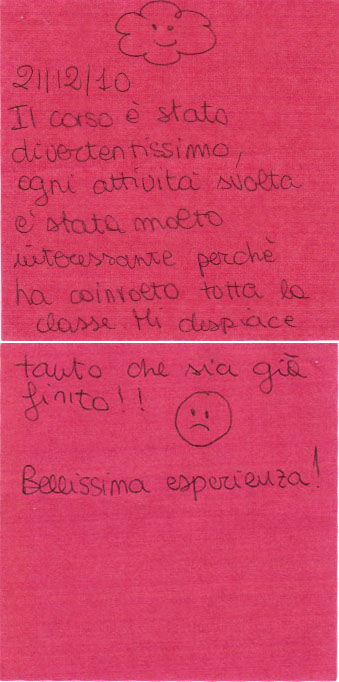 21/12/10
Il corso è stato
divertentissimo,
ogni attività svolta
e' stata molto
interessante perchè
ha coinvolto tutta la
classe. Mi despiace
tanto che sia già
finito!!
Bellissima esperienza!